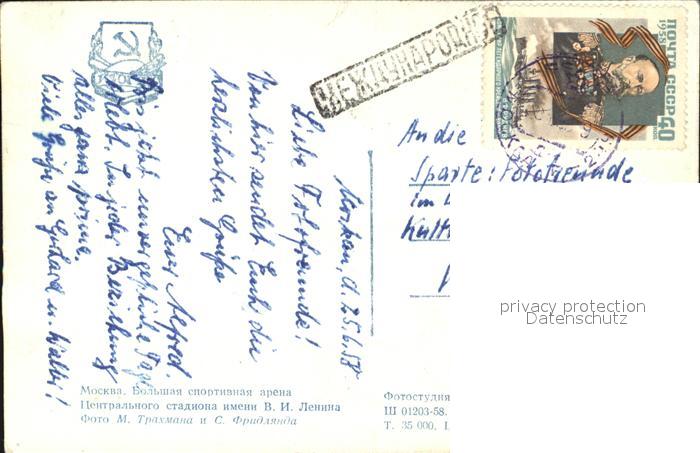 МЕЖДУНАРОДНОЕ
ПОЧТА СССР
1958
40
коп
Moskau, d. 25.6.58
Liebe Fotofreunde!
Von hier sendet Euch die
herzlichsten Grüße
Euer Alfred.
Bis jetzt unvergeßliche Tage
erlebt. In jeder Beziehung
alles ganz prima.
Viele Grüße an Gerhard u. Walter!
An die
Sparte: Fotofreunde
im
Kult
privacy protection
Datenschutz
Москва. Большая спортивная арена
Центрального стадиона имени В. И. Ленина
Фото М. Трахмана и С. Фридлянда
Фотостудия
Ш 01203-58.
Т. 35 000.